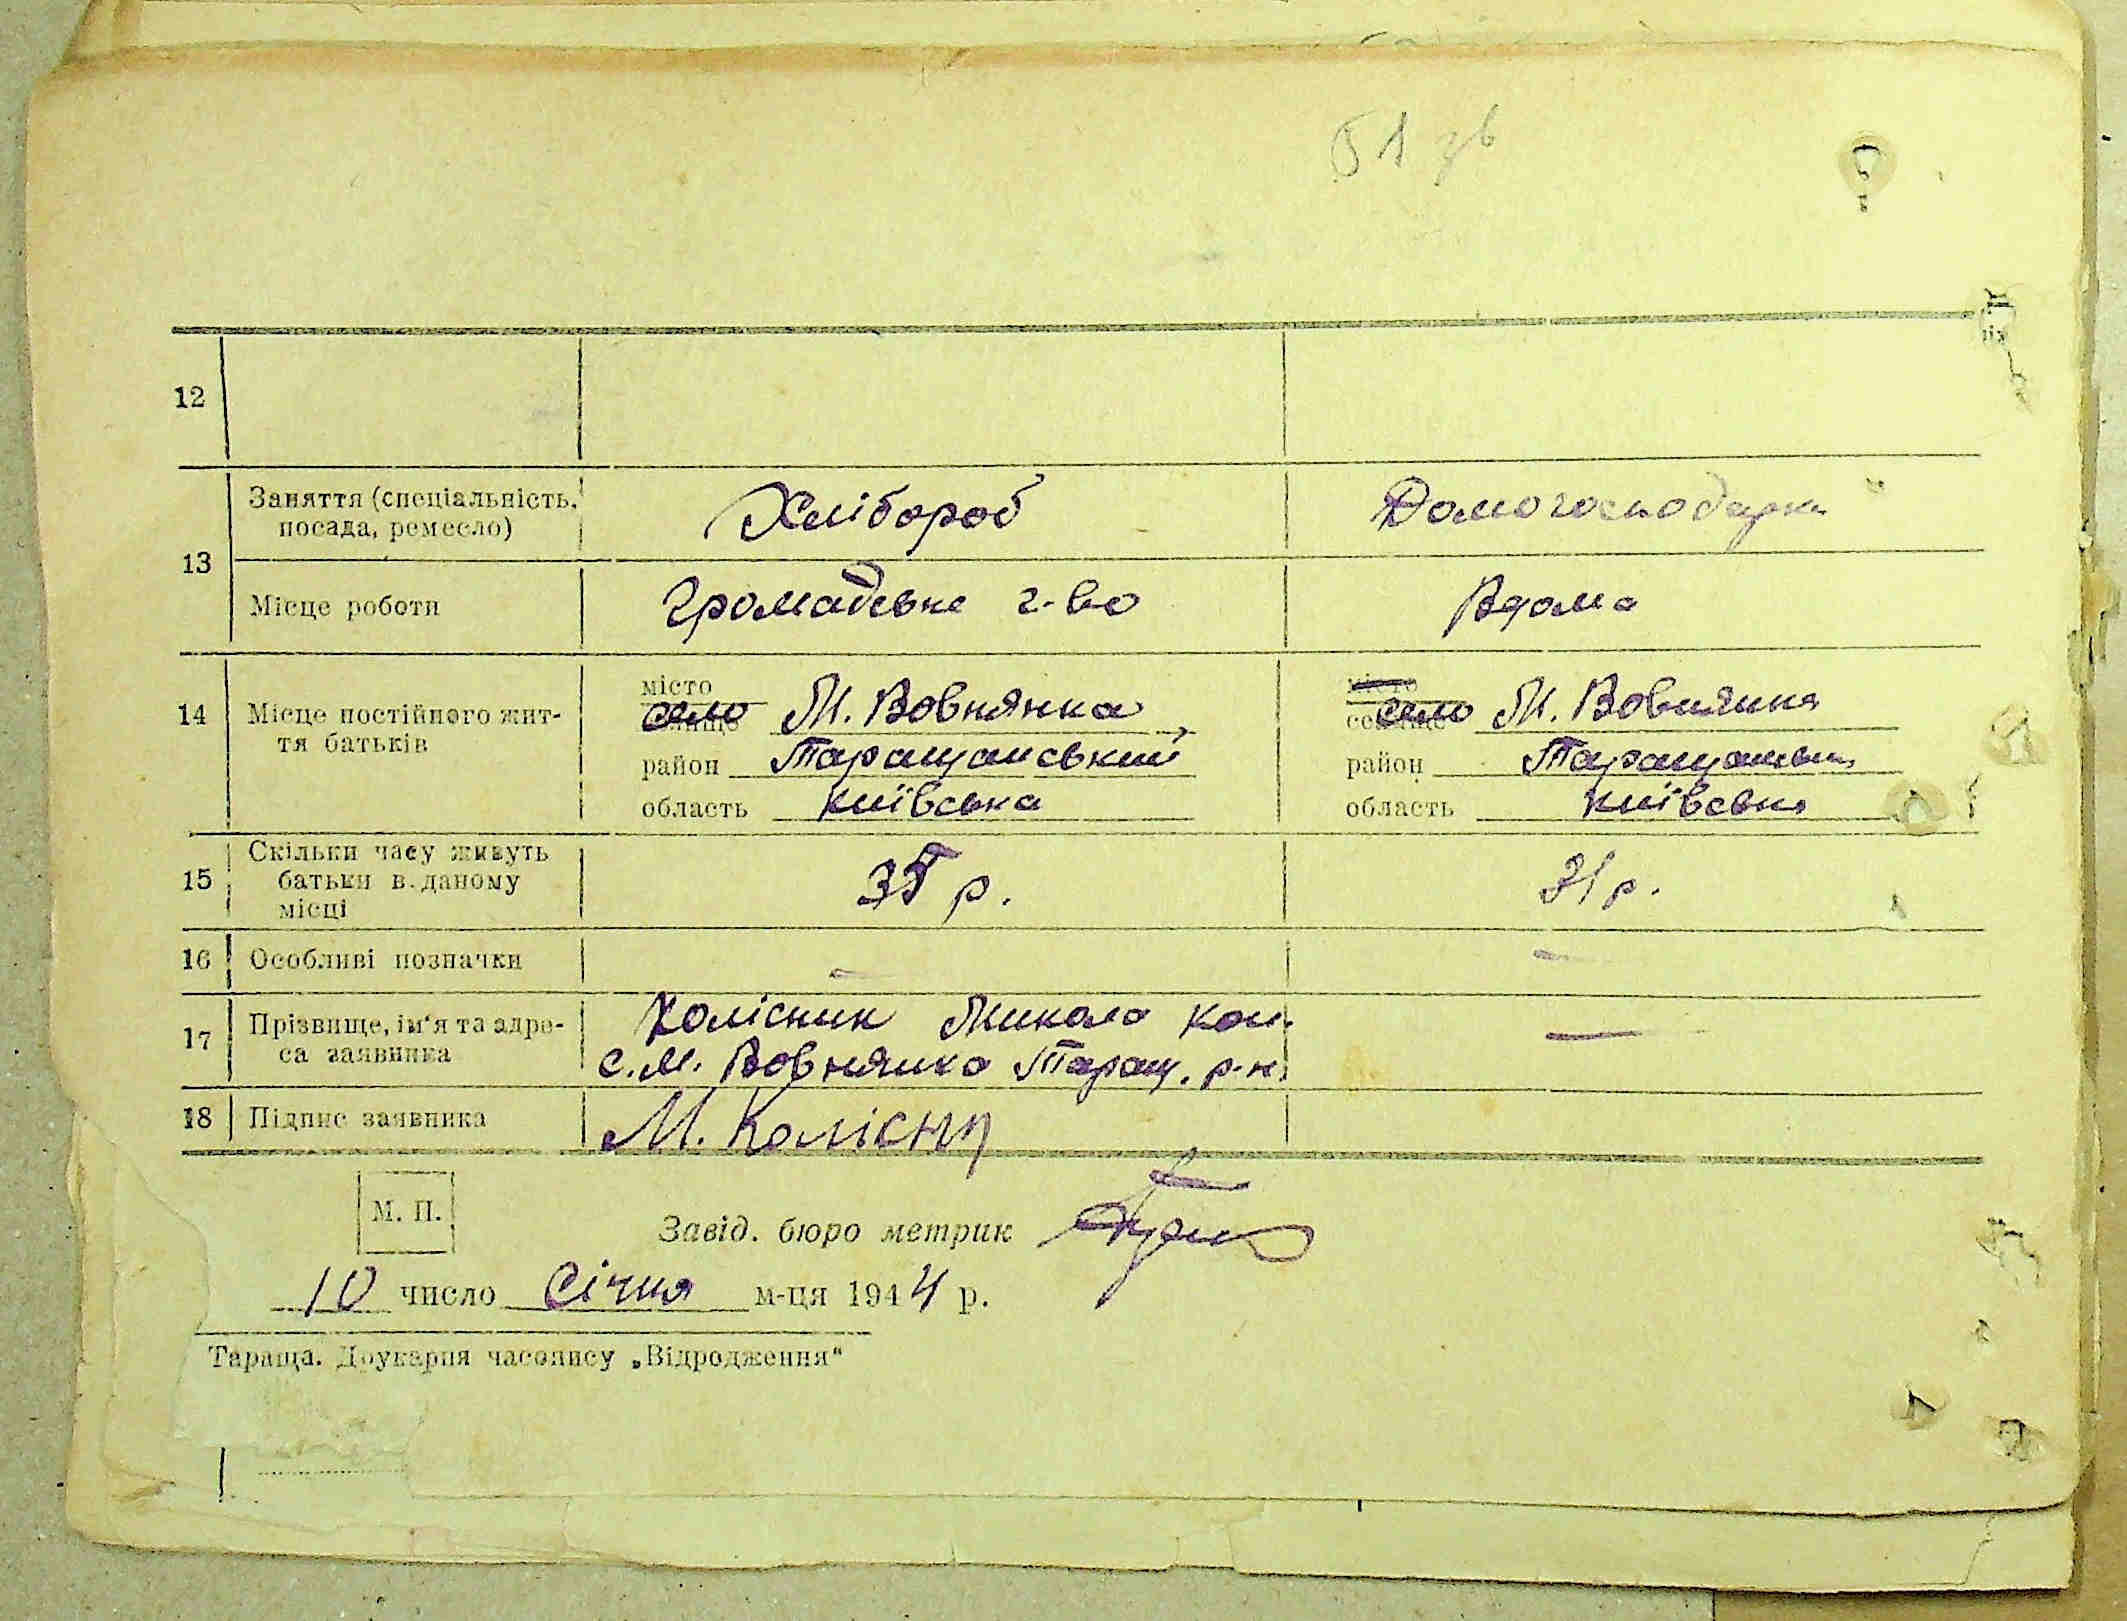 51 зв
12
13 Заняття (спеціальність, Хлібороб Домогосподарка
посада, ремесло)
Місце роботи Громадське г-во Вдома
місто місто
14 Місце постійного жит- село М. Вовнянка село М. Вовнянка
тя батьків район Таращанський район Таращанський
область Київська область Київська
Скільки часу живуть
15 батьки в даному 35 р. 31 р.
місці
16 Особливі позначки — —
17 Прізвище, ім'я та адре- Колісник Микола Кон. —
са заявника С. М. Вовнянка Таращ. р-н.
18 Підпис заявника М. Колісн
М. П. Завід. бюро метрик
10 число Січня м-ця 1944 р.
Тараща. Друкарня часопису „Відродження“